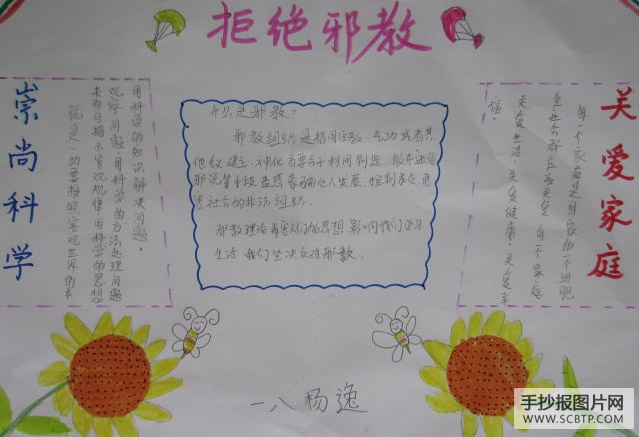 拒绝邪教
崇尚科学
用科学的知识解决问题,
观察问题用科学的方法处理问题
来面目揭示客观规律用科学的思想
就是一切要按照客观世界的本
什么是邪教:
邪教组织是指冒用宗教、气功或者其
他名义建立、神化首要分子利用制造、散布迷信
邪说等手段蛊惑蒙骗他人发展、控制成员危
害社会的非法组织.
邪教理论毒害人们的思想,影响我们学习
生活我们坚决反对邪教.
关爱家庭
每一个家庭是国家的一个细胞
全世界都应该关爱每一个家庭
关爱生活,关爱健康,关爱幸
福.
一八杨逸
手抄报图片网
WWW.SCBTP.COM